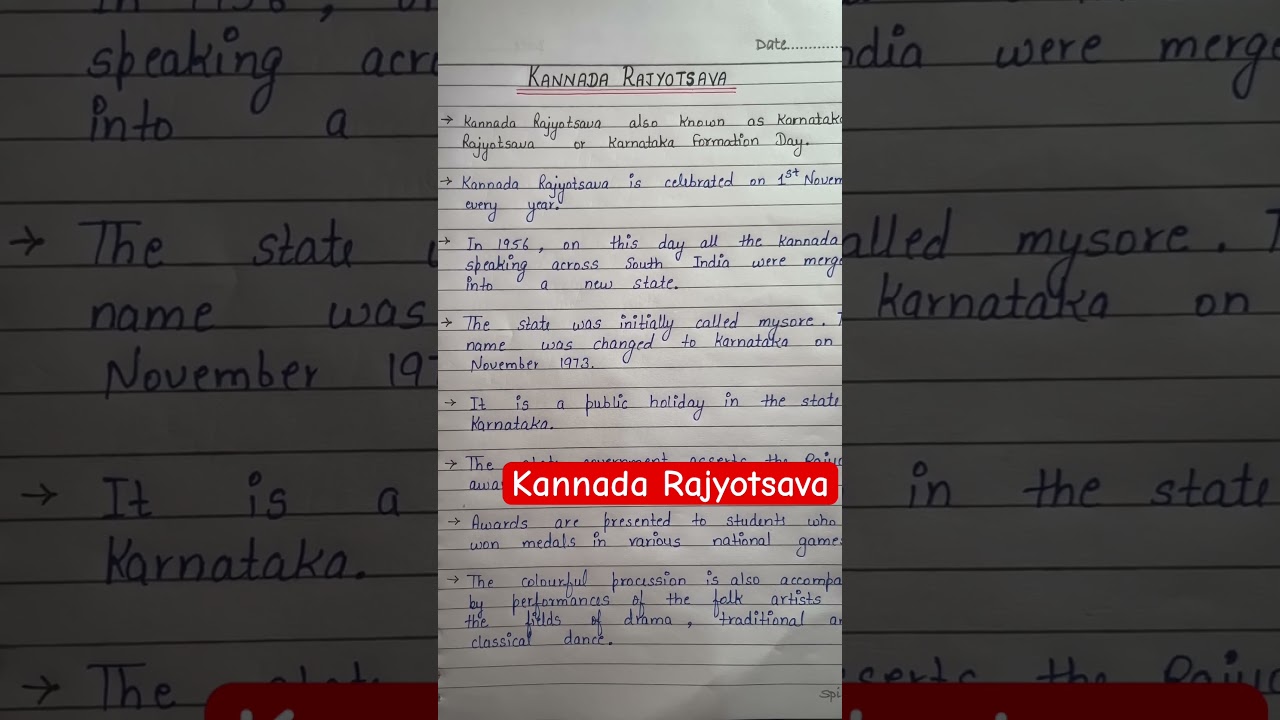 Date..............
KANNADA RAJYOTSAVA
→ Kannada Rajyotsava also known as Karnataka
Rajyotsava or Karnataka Formation Day.
→ Kannada Rajyotsava is celebrated on 1st Novem
every year.
→ In 1956, on this day all the Kannada
speaking across South India were merge
into a new state.
→ The state was initially called mysore. T
name was changed to Karnataka on
November 1973.
→ It is a public holiday in the state
Karnataka.
→ The state government
awa
Kannada Rajyotsava
→ Awards are presented to students who
won medals in various national game
→ The colourful procession is also accompa
by performances of the folk artists
the fields of drama, traditional a
classical dance.
spi
speaking acr
into a
→ The state
name was
November 19
→ It is a
Karnataka.
→ The
ndia were merge
alled mysore. T
Karnataka on
in the state